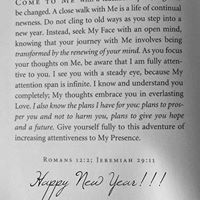 COME TO ME with
be changed. A close walk with Me is a life of continual
newness. Do not cling to old ways as you step into a
new year. Instead, seek My Face with an open mind,
knowing that your journey with Me involves being
transformed by the renewing of your mind. As you focus
your thoughts on Me, be aware that I am fully atten-
tive to you. I see you with a steady eye, because My
attention span is infinite. I know and understand you
completely; My thoughts embrace you in everlasting
Love. I also know the plans I have for you: plans to pros-
per you and not to harm you, plans to give you hope
and a future. Give yourself fully to this adventure of
increasing attentiveness to My Presence.
ROMANS 12:2; JEREMIAH 29:11
Happy New Year!!!